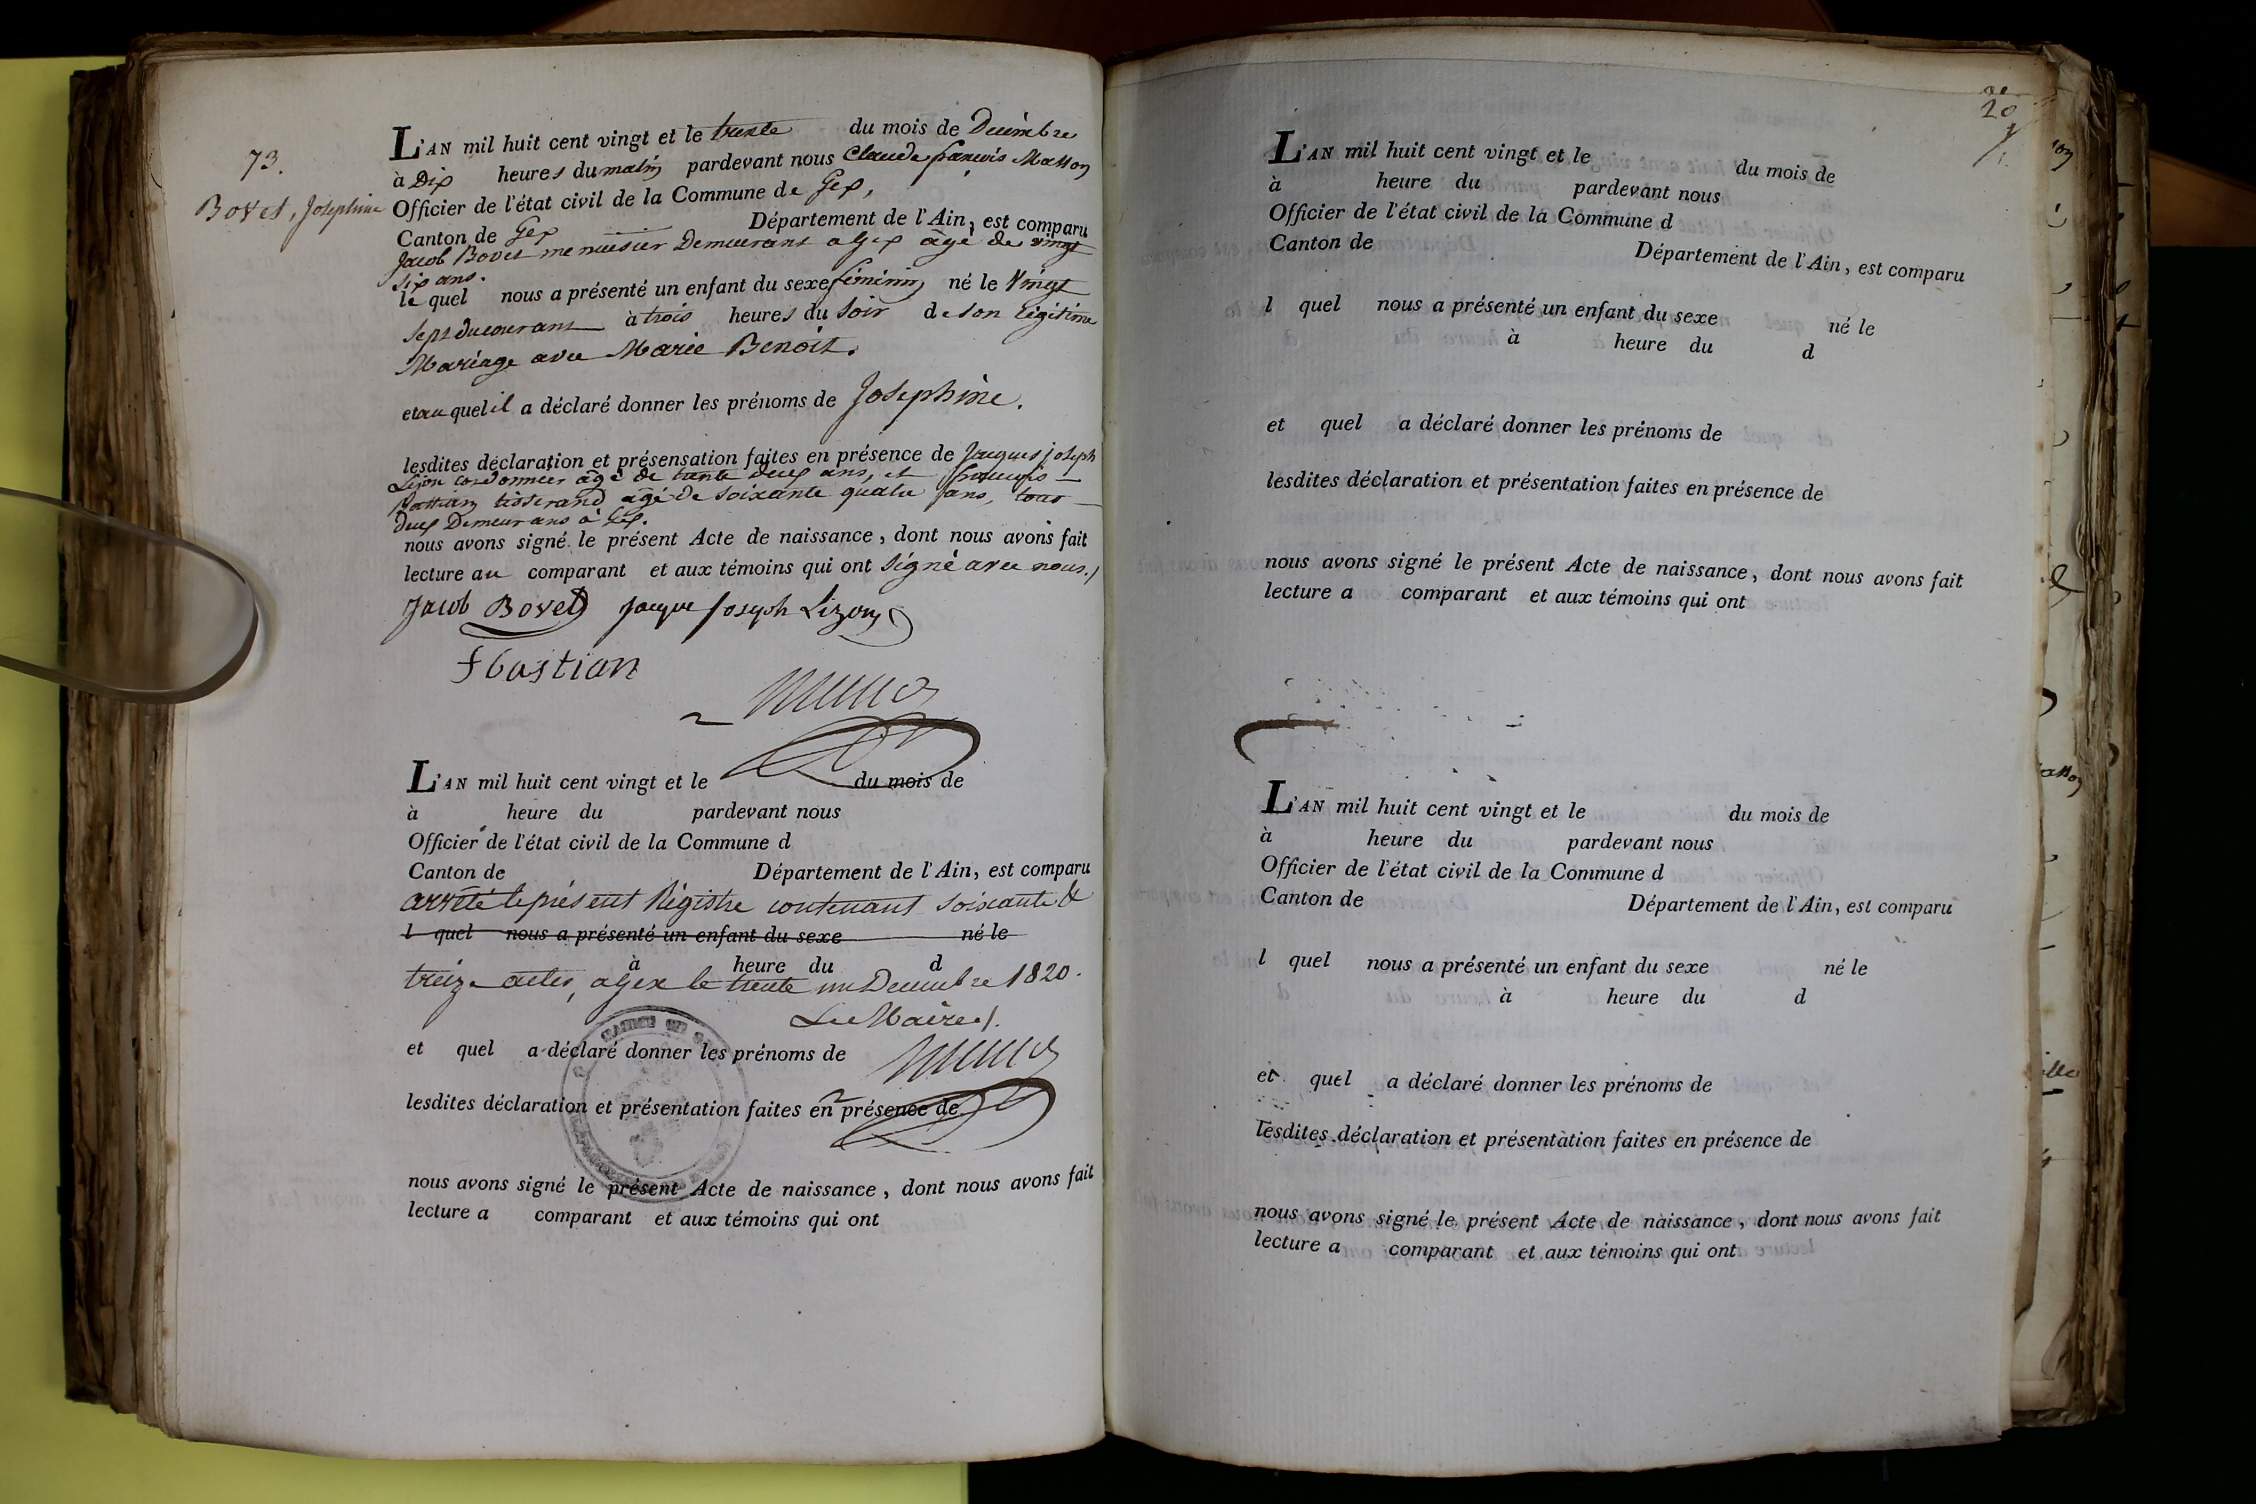 73.
Bovet, Josephine
L'AN mil huit cent vingt et le trente du mois de Decembre
à Dix heures du matin pardevant nous Claude françois Masson
Officier de l'état civil de la Commune de Gex,
Canton de Gex Département de l'Ain, est comparu
Jacob Bovet menuisier Demeurant a Gex âgé de vingt
six ans.
le quel nous a présenté un enfant du sexe féminin né le Vingt
sept du courant à trois heures du soir de son légitime
Mariage avec Marie Benoit.
et au quel il a déclaré donner les prénoms de Josephine.
lesdites déclaration et présensation faites en présence de Jacques joseph
Lizon cordonnier âgé de trente deux ans, et françois
Bastian tisserand agé de soixante quatre ans, tous
deux Demeurans à Gex.
nous avons signé le présent Acte de naissance, dont nous avons fait
lecture au comparant et aux témoins qui ont signé avec nous./
Jacob Bovet Jacque Joseph Lizon
fbastian
L'AN mil huit cent vingt et le du mois de
à heure du pardevant nous
Officier de l'état civil de la Commune d
Canton de Département de l'Ain, est comparu
arrêté le présent Régistre contenant soixante &
l quel nous a présenté un enfant du sexe né le
à heure du d
treize actes, a Gex le trente un Decembre 1820.
Le Maire /.
et quel a déclaré donner les prénoms de
lesdites déclaration et présentation faites en présence de
nous avons signé le présent Acte de naissance, dont nous avons fait
lecture a comparant et aux témoins qui ont
20
L'AN mil huit cent vingt et le du mois de
à heure du pardevant nous
Officier de l'état civil de la Commune d
Canton de Département de l'Ain, est comparu
l quel nous a présenté un enfant du sexe né le
à heure du d
et quel a déclaré donner les prénoms de
lesdites déclaration et présentation faites en présence de
nous avons signé le présent Acte de naissance, dont nous avons fait
lecture a comparant et aux témoins qui ont
L'AN mil huit cent vingt et le du mois de
à heure du pardevant nous
Officier de l'état civil de la Commune d
Canton de Département de l'Ain, est comparu
l quel nous a présenté un enfant du sexe né le
à heure du d
et quel a déclaré donner les prénoms de
lesdites déclaration et présentation faites en présence de
nous avons signé le présent Acte de naissance, dont nous avons fait
lecture a comparant et aux témoins qui ont